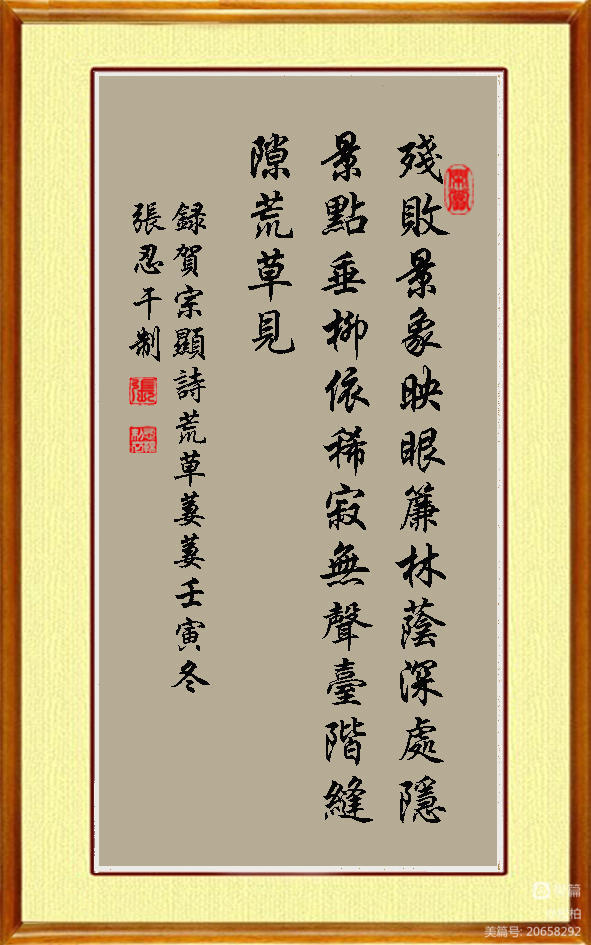 殘敗景象映眼簾林蔭深處隱
景點垂柳依稀寂無聲臺階縫
隙荒草見
録賀宗顯詩荒草萋萋壬寅冬
張忍干制
張
美篇号: 20658292